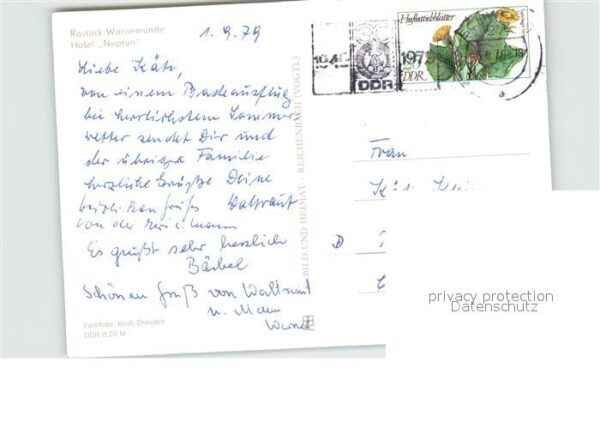 Rostock-Warnemünde
Hotel „Neptun"
1.9.79
Liebe Käte,
von einem Badeausflug
bei herrlichstem Sommer
wetter sendet Dir und
der übrigen Familie
herzliche Grüße Deine
Waltraut
von der
Es grüßt sehr herzlich
Bärbel
Schönen Gruß von Waltraut
u. Mann
Farbfoto: Krull, Dresden
DDR 0,20 M
BILD UND HEIMAT · REICHENBACH (VOGTL)
DDR
Huflattichblätter
DDR
Frau
D
privacy protection
Datenschutz